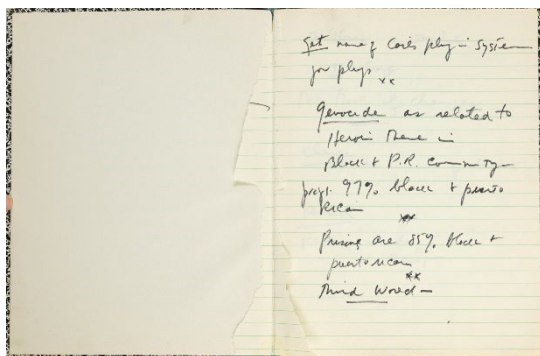 Get name of Coils plug-in System
for plugs
xx
Genocide as related to
Heroin theme in
Black & P.R. Community—
97% black & puerto
Rican
xx
Prisons are 85% black &
puerto rican
xx
Third World—